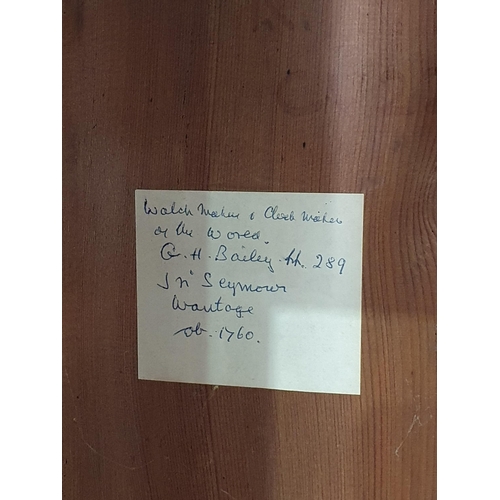 Watch Makers & Clock Makers
of the World.
G. H. Bailey. pp. 289
Jnº Seymour
Wantage
ob. 1760.